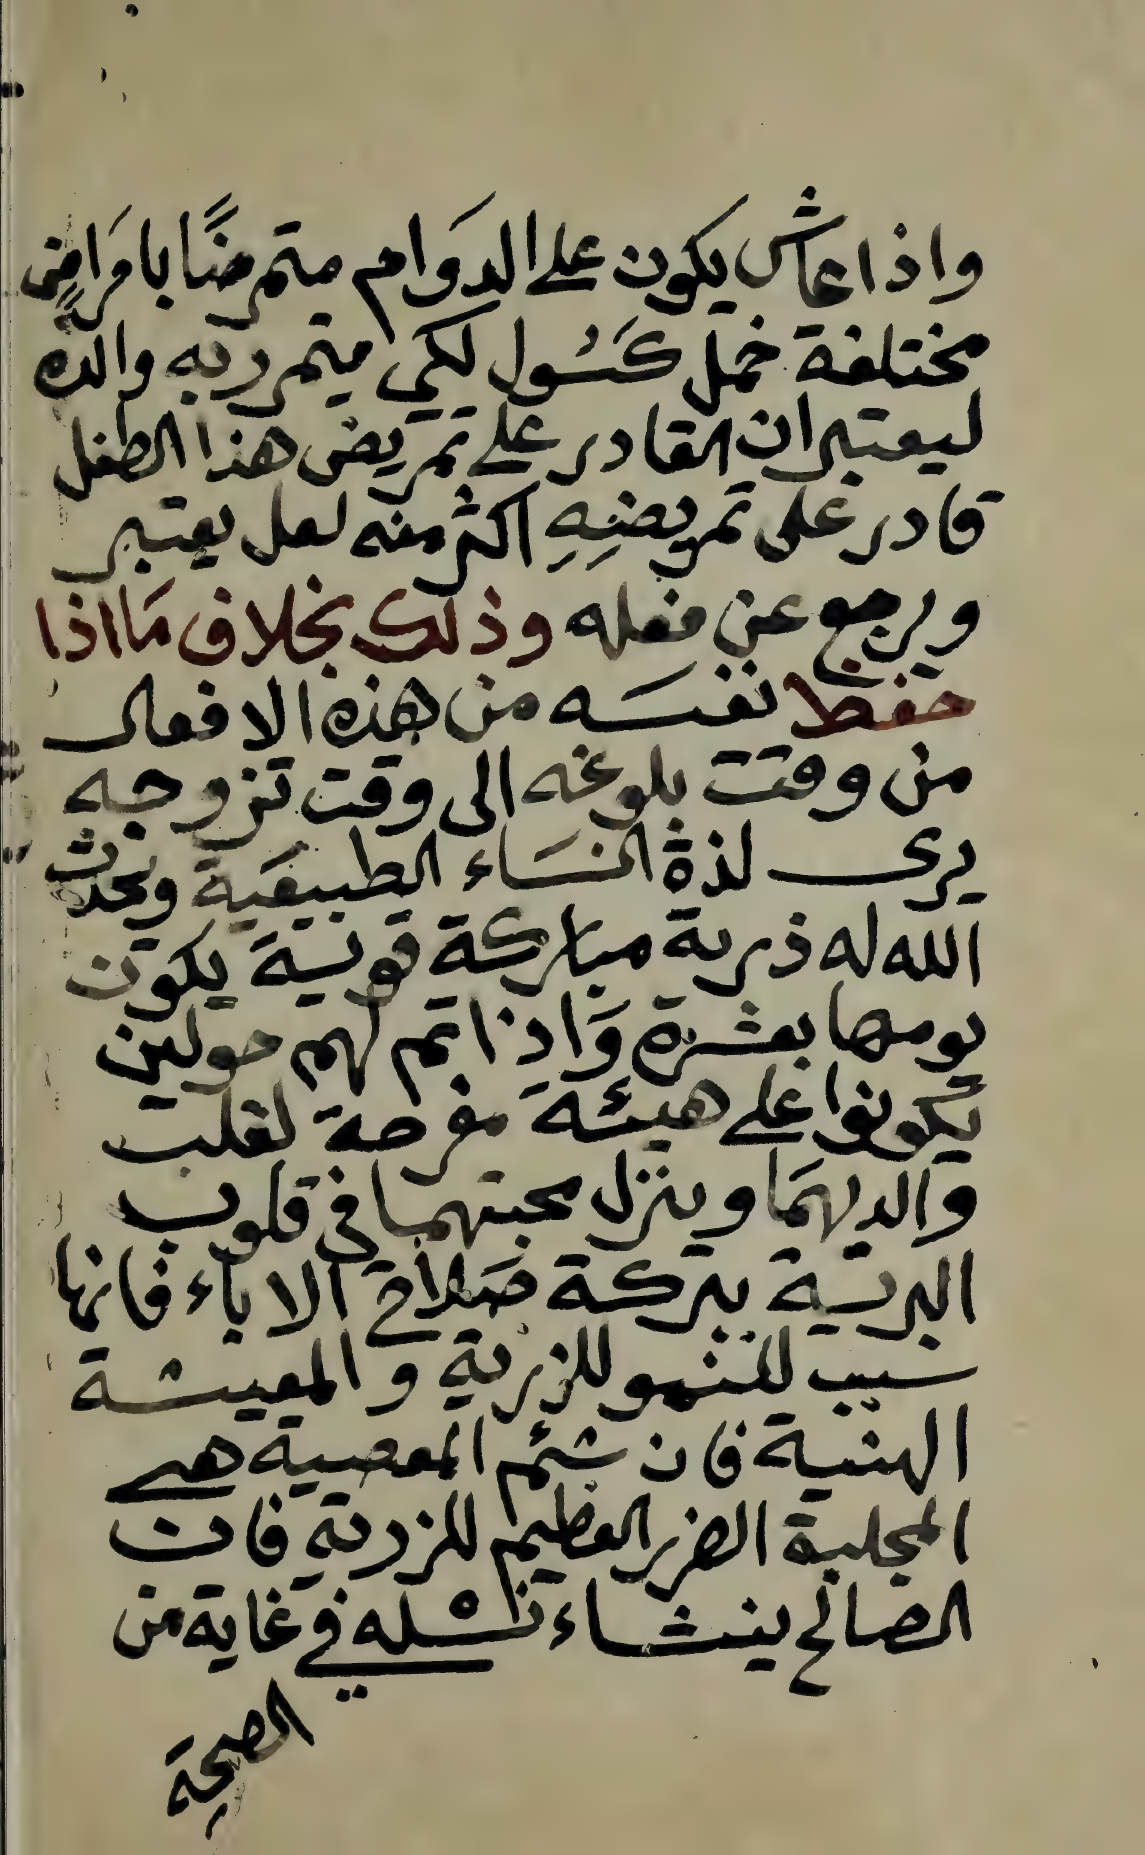 واذا عاش يكون على الدوَام متمرضًا بامرَاضٍ
مختلفة خمل كسُول لكى يتمرد به والده
ليعتبر ان القادر على تمريض هذا الطفل
قادر على تمريضهِ اكثر منه لعل يعتبر
ويرجع عن فعله وذلك بخلاف مَا اذا
حفظ نفسَه من هذه الافعال
من وقت بلوغه الى وقت تزوجه
يرى لذة النسَاء الطبيعَية ويحدث
الله له ذرية مباركة قوية يكون
يومها بعشرة وَاذا تم لهم حولين
يكونوا على هيئة مفرحة لقلب
والديهمَا وينزل محبتهما فى قلوب
البرية ببركة صَلاح الاباء فانها
سبب للنمو للزرية والمعيشة
الهنية فان شئم المعصية هى
المجلبة الضرر العظيم للزرية فان
الصالح ينشاء نسله في غاية من
الصحة